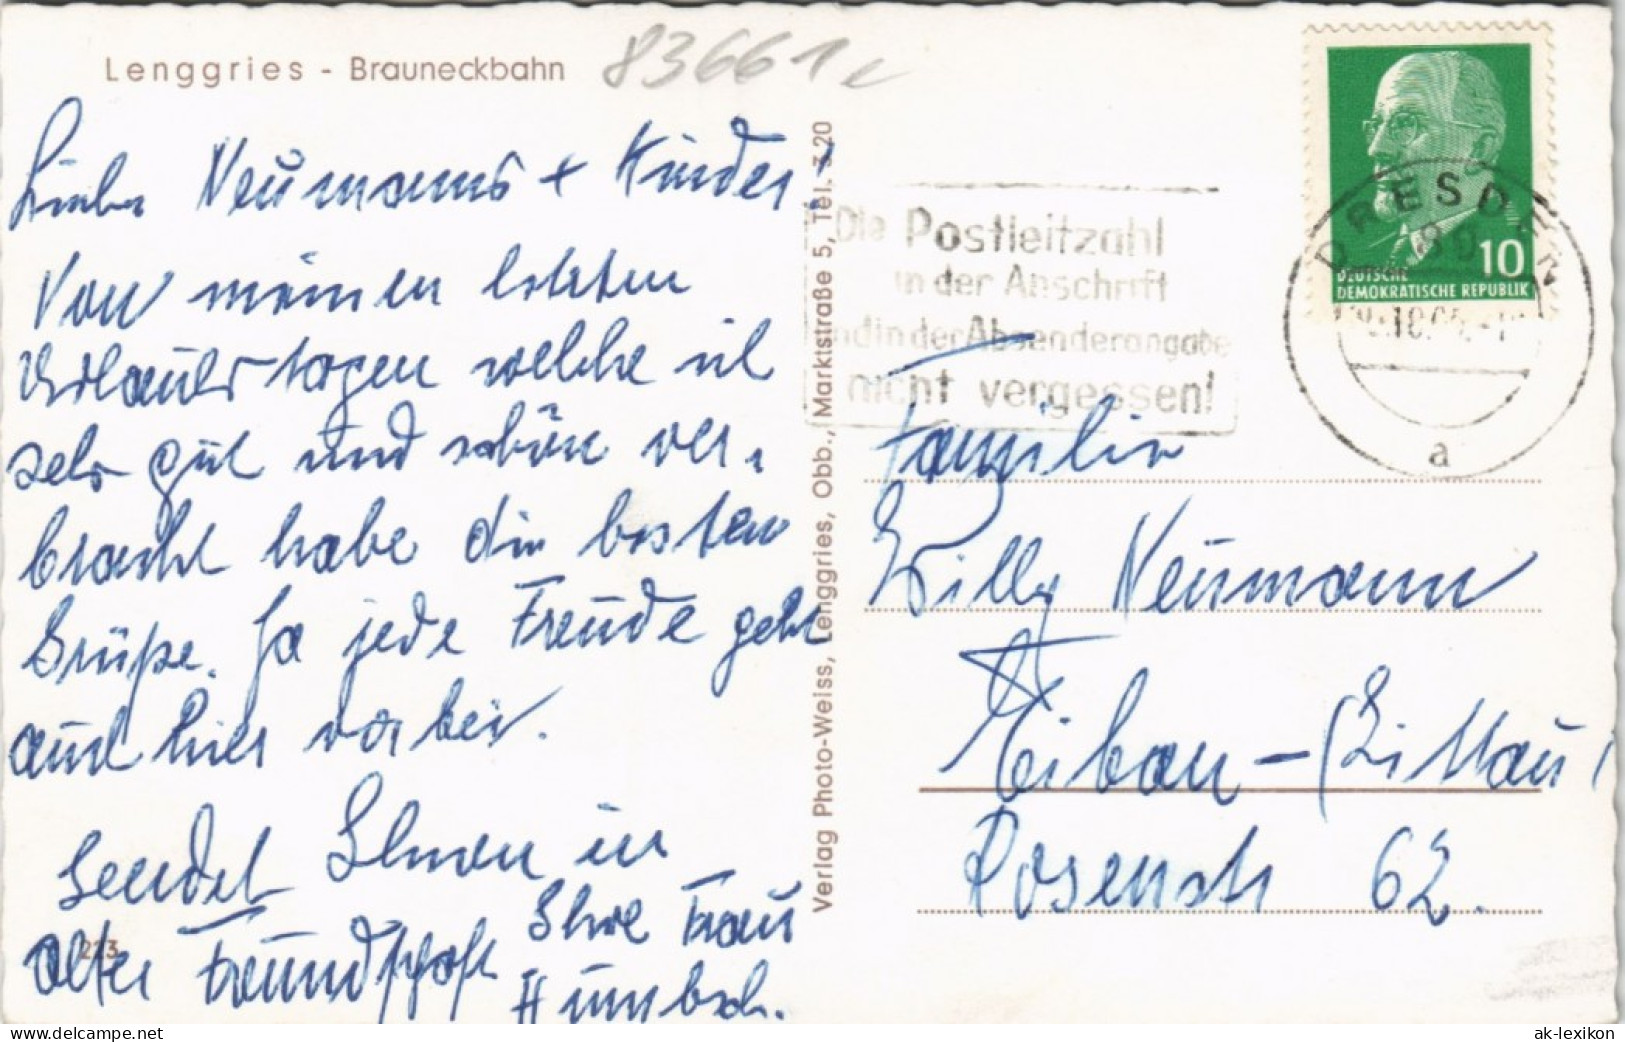 Lenggries - Brauneckbahn
83661
Liebe Neumanns + Kinder!
Von meinen letzten
Urlaubstagen welche ich
sehr gut und schön ver-
bracht habe die besten
Grüße. Ja jede Freude geht
auch hier vorbei.
Sendet Ihnen in
alter Freundschaft Ihre Frau
223
Verlag Photo-Weiss, Lenggries, Obb., Marktstraße 5, Tel. 320
Die Postleitzahl
in der Anschrift
und in der Absenderangabe
nicht vergessen!
DRESDEN
a
10
DEUTSCHE
DEMOKRATISCHE REPUBLIK
Familie
Willy Neumann
Eibau - (Zittau)
Rosenstr 62.
www.delcampe.net
ak-lexikon